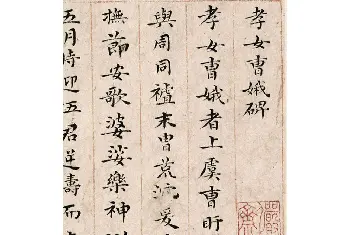 孝女曹娥碑
孝女曹娥者上虞曹盱
與周同祖末冑荒流爰
撫節安歌婆娑樂神以
五月時迎伍君逆濤而